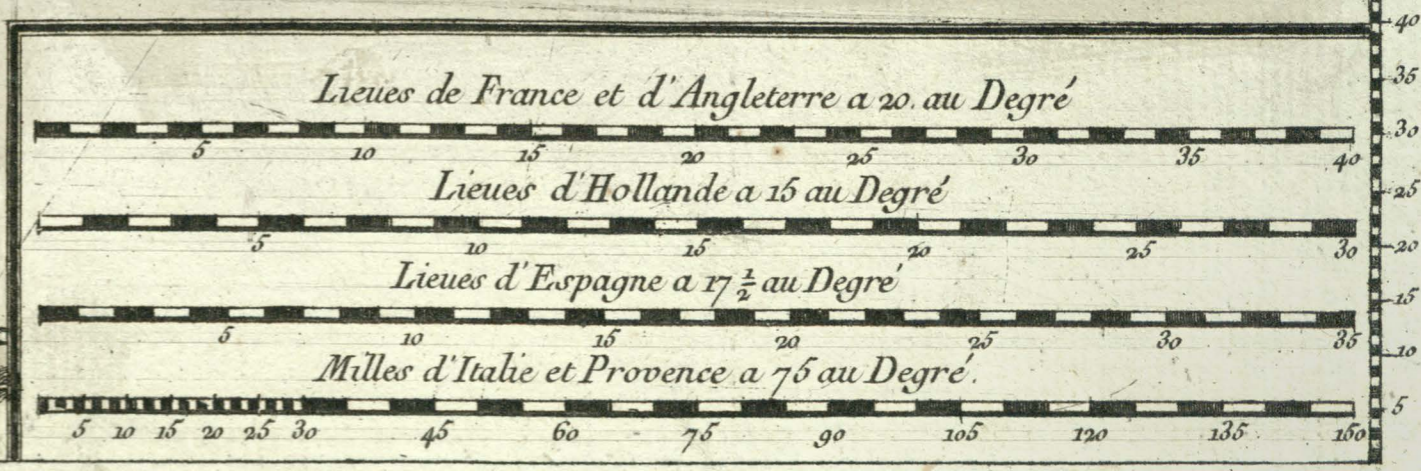 Lieues de France et d'Angleterre a 20. au Degré
5 10 15 20 25 30 35 40
Lieues d'Hollande a 15 au Degré
5 10 15 20 25 30
Lieues d'Espagne a 17 ½ au Degré
5 10 15 20 25 30 35
Milles d'Italie et Provence a 75 au Degré.
5 10 15 20 25 30 45 60 75 90 105 120 135 150
40
35
30
25
20
15
10
5